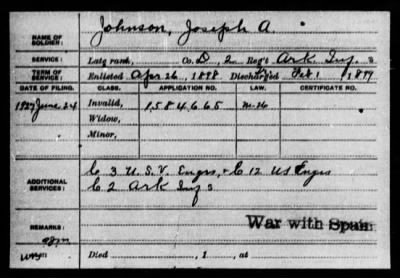 NAME OF SOLDIER: Johnson, Joseph A.
SERVICE: Late rank, Co. D, 2 Reg't Ark Inf.
TERM OF SERVICE: Enlisted Apr 26, 1898 Discharged Feb 1, 1899
DATE OF FILING. CLASS. APPLICATION NO. LAW. CERTIFICATE NO.
1927 June 24 Invalid, 1584665
Widow,
Minor,
ADDITIONAL SERVICES: C 3 U.S.V. Engrs, & C 12 US Engrs
C 2 Ark Inf
REMARKS: War with Spain
Died , 1 , at